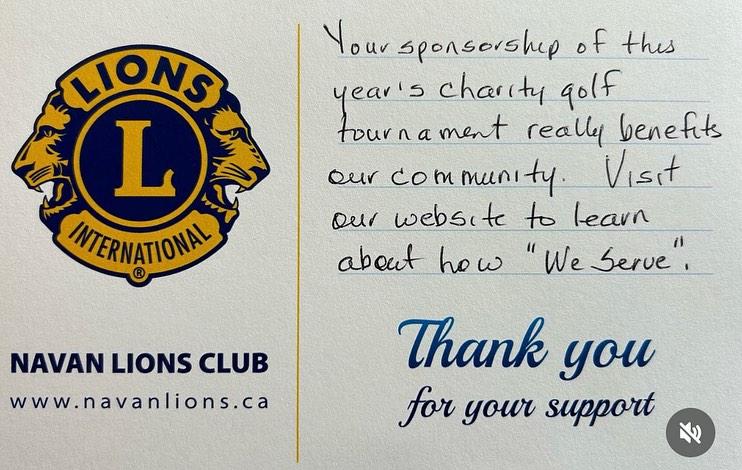 LIONS
L
INTERNATIONAL
®
NAVAN LIONS CLUB
www.navanlions.ca
Your sponsorship of this
year's charity golf
tournament really benefits
our community. Visit
our website to learn
about how "We Serve".
Thank you
for your support